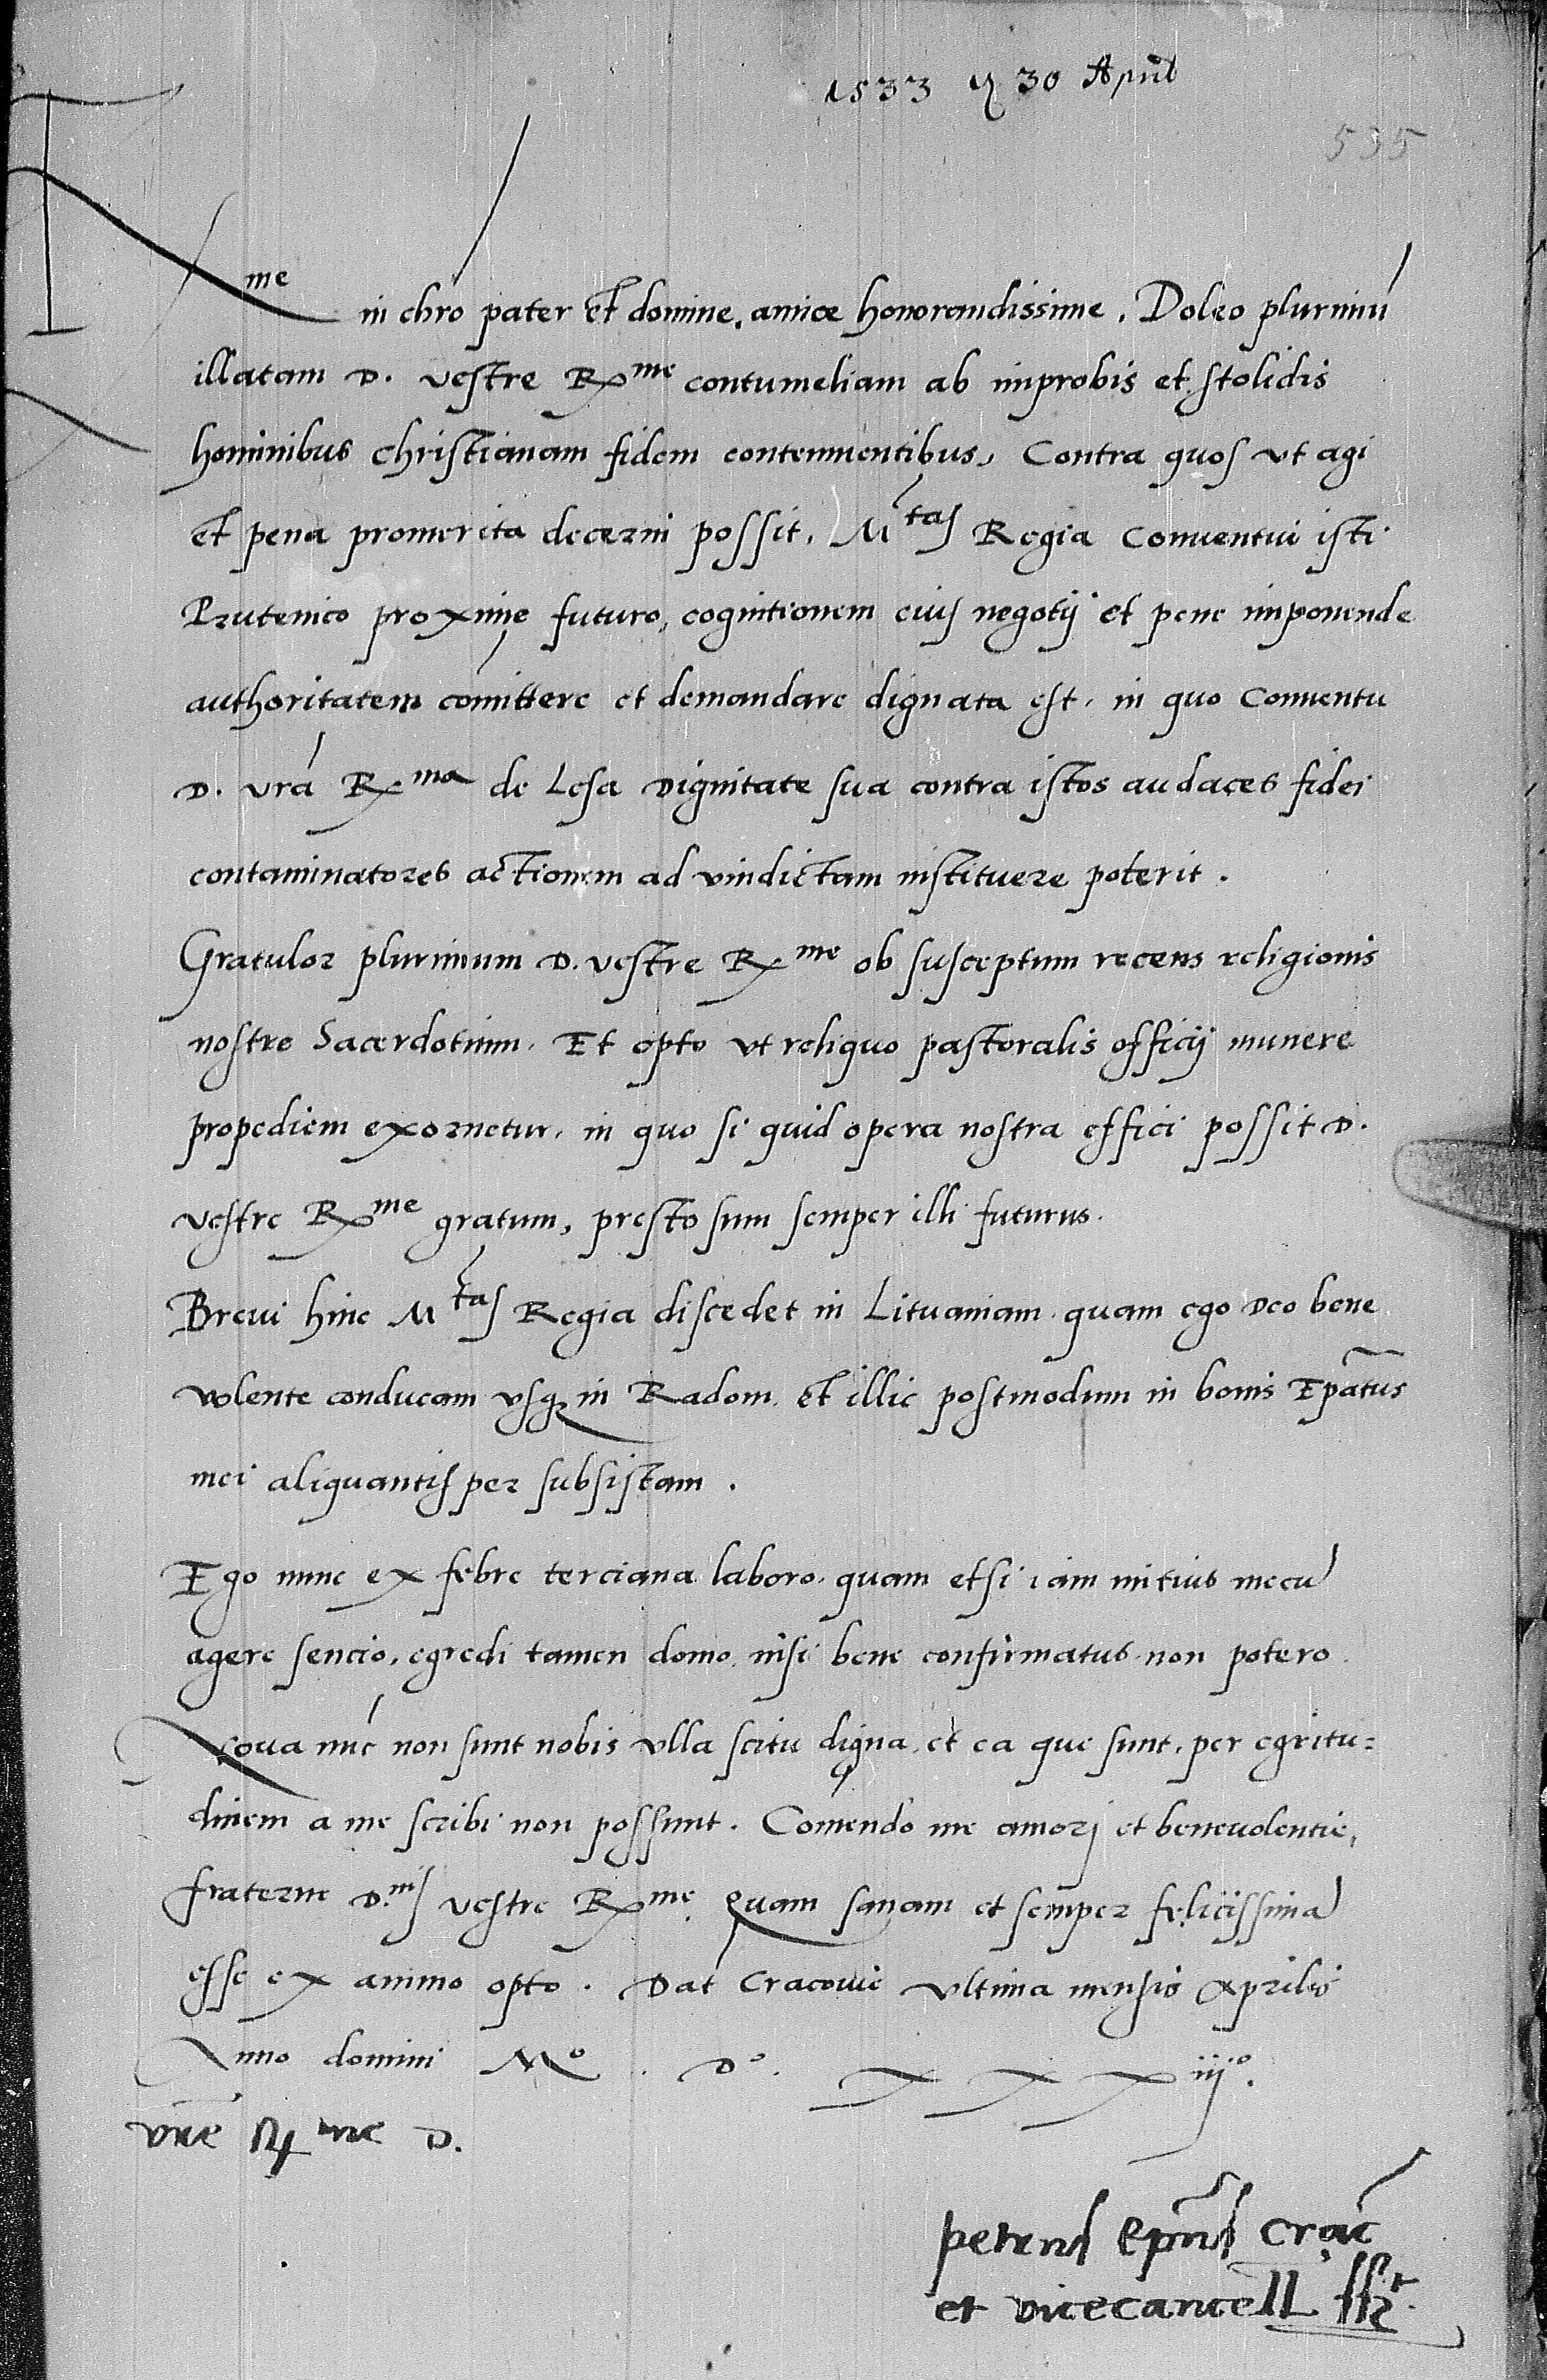 1533 30 April
535
R me in chro pater et domine, amice honorandissime. Doleo plurimu
illatam D. vestre Rme contumeliam ab improbis et stolidis
hominibus christianam fidem contemnentibus, Contra quos vt agi
et pena promerita decerni possit, Mtas Regia Conventui isti
Prutenico proxime futuro, cognitionem eius negotij et pene imponende
authoritatem comittere et demandare dignata est, in quo Conventu
D. vra Rma de Lesa Dignitate sua contra istos audaces fidei
contaminatores actionem ad vindictam instituere poterit.
Gratulor plurimum D. vestre Rme ob susceptum recens religionis
nostre Sacerdotium. Et opto vt reliquo pastoralis officij munere
propediem exornetur, in quo si quid opera nostra effici possit D.
vestre Rme gratum, presto sum semper illi futurus.
Brevi hinc Mtas Regia discedet in Lituaniam quam ego Deo bene
volente conducam vsq in Radom. Et illic postmodum in bonis Epatus
mei aliquantisper subsistam.
Ego nunc ex febre terciana laboro, quam etsi iam mitius mecu
agere sencio, egredi tamen domo, nisi bene confirmatus non potero
Nova nuc non sunt nobis vlla scitu digna, et ea que sunt, per egritu=
dinem a me scribi non possunt. Comendo me amori et benevolentie,
fraterne D.nis vestre Rme. Quam sanam et semper felicissima
esse ex animo opto. Dat Cracovie vltima mensis Aprilis
Anno domini Mo. Do. xxxiijo.
vre Rme D.
petrus Epus Crac
et vicecancell sst